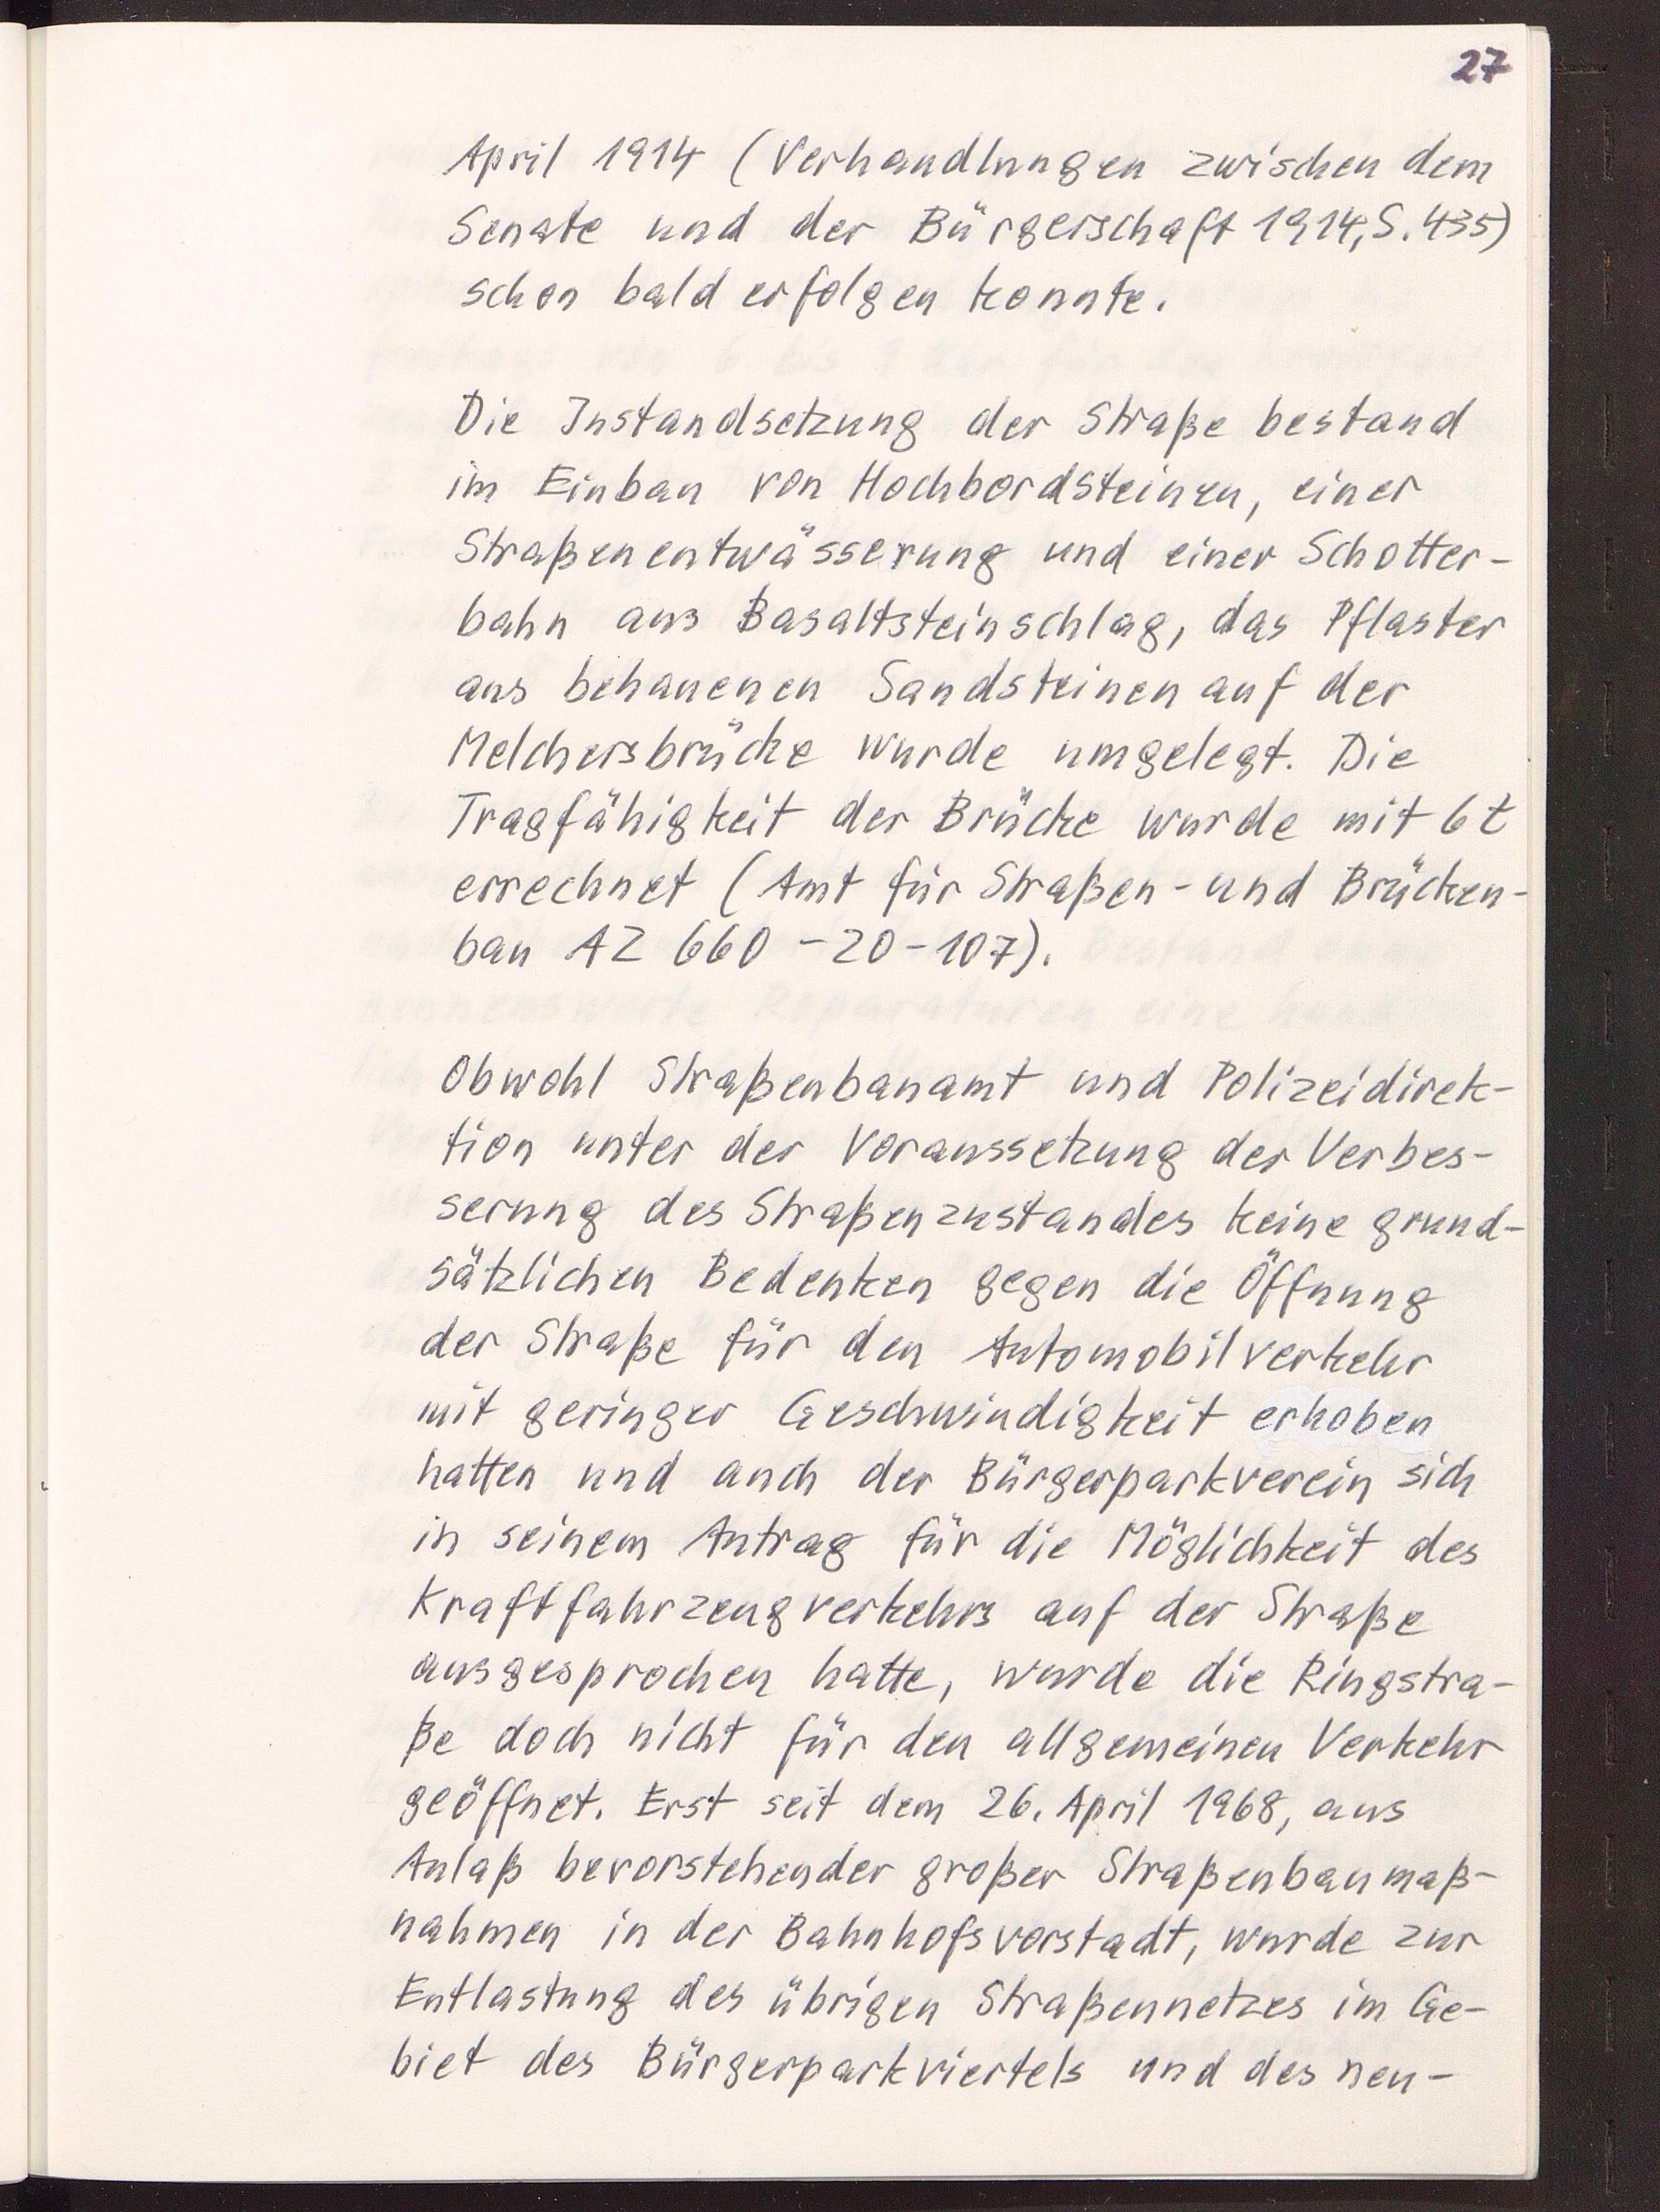 27
April 1914 (Verhandlungen zwischen dem
Senate und der Bürgerschaft 1914, S. 435)
schon bald erfolgen konnte.
Die Instandsetzung der Straße bestand
im Einbau von Hochbordsteinen, einer
Straßenentwässerung und einer Schotter-
bahn aus Basaltsteinschlag, das Pflaster
aus behauenen Sandsteinen auf der
Melchersbrücke wurde umgelegt. Die
Tragfähigkeit der Brücke wurde mit 6t
errechnet (Amt für Straßen- und Brücken-
bau AZ 660-20-107).
Obwohl Straßenbauamt und Polizeidirek-
tion unter der Voraussetzung der Verbes-
serung des Straßenzustandes keine grund-
sätzlichen Bedenken gegen die Öffnung
der Straße für den Automobilverkehr
mit geringer Geschwindigkeit erhoben
hatten und auch der Bürgerparkverein sich
in seinem Antrag für die Möglichkeit des
Kraftfahrzeugverkehrs auf der Straße
ausgesprochen hatte, wurde die Ringstra-
ße doch nicht für den allgemeinen Verkehr
geöffnet. Erst seit dem 26. April 1968, aus
Anlaß bevorstehender großer Straßenbaumaß-
nahmen in der Bahnhofsvorstadt, wurde zur
Entlastung des übrigen Straßennetzes im Ge-
biet des Bürgerparkviertels und des neu-